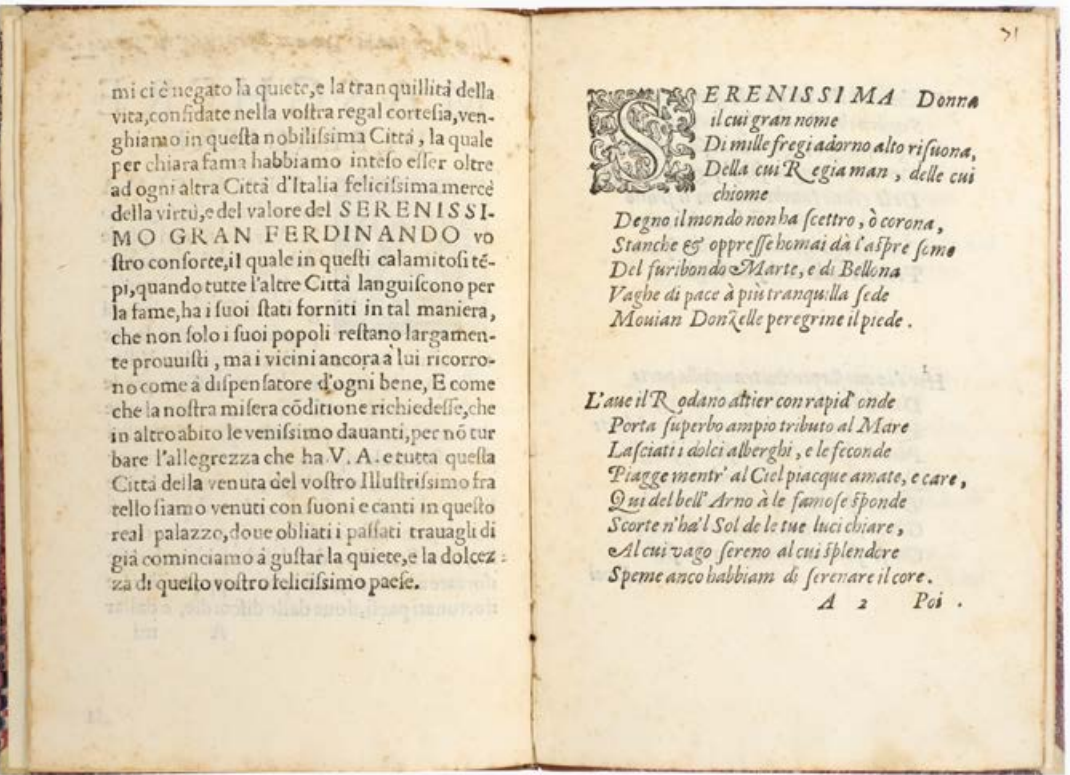 mi ci è negato la quiete,e la tranquillità della
vita,confidate nella vostra regal cortesia,ven-
ghiamo in questa nobilissima Città, la quale
per chiara fama habbiamo inteso esser oltre
ad ogni altra Città d'Italia felicissima mercè
della virtù,e del valore del SERENISSI-
MO GRAN FERDINANDO vo
stro consorte,il quale in questi calamitosi té-
pi,quando tutte l'altre Città languiscono per
la fame,ha i suoi stati forniti in tal maniera,
che non solo i suoi popoli restano largamen-
te prouuisti, ma i vicini ancora à lui ricorro-
no come à dispensatore d'ogni bene, E come
che la nostra misera cōditione richiedesse,che
in altro abito le venissimo dauanti,per nō tur
bare l'allegrezza che ha V. A. e tutta questa
Città della venuta del vostro Illustrissimo fra
tello siamo venuti con suoni e canti in questo
real palazzo,doue obliati i passati trauagli di
già cominciamo à gustar la quiete,e la dolcez-
za di questo vostro felicissimo paese.
71
SERENISSIMA Donna
il cui gran nome
Di mille fregi adorno alto risuona,
Della cui Regia man, delle cui
chiome
Degno il mondo non ha scettro, ò corona,
Stanche & oppresse homai dà l'aspre some
Del furibondo Marte, e di Bellona
Vaghe di pace à più tranquilla sede
Mouian Donzelle peregrine il piede.
L'aue il Rodano altier con rapid' onde
Porta superbo ampio tributo al Mare
Lasciati i dolci alberghi, e le feconde
Piagge mentr' al Ciel piacque amate, e care,
Qui del bell' Arno à le famose sponde
Scorte n'ha'l Sol de le tue luci chiare,
Al cui vago sereno al cui splendore
Speme anco habbiam di serenare il core.
A 2 Poi.